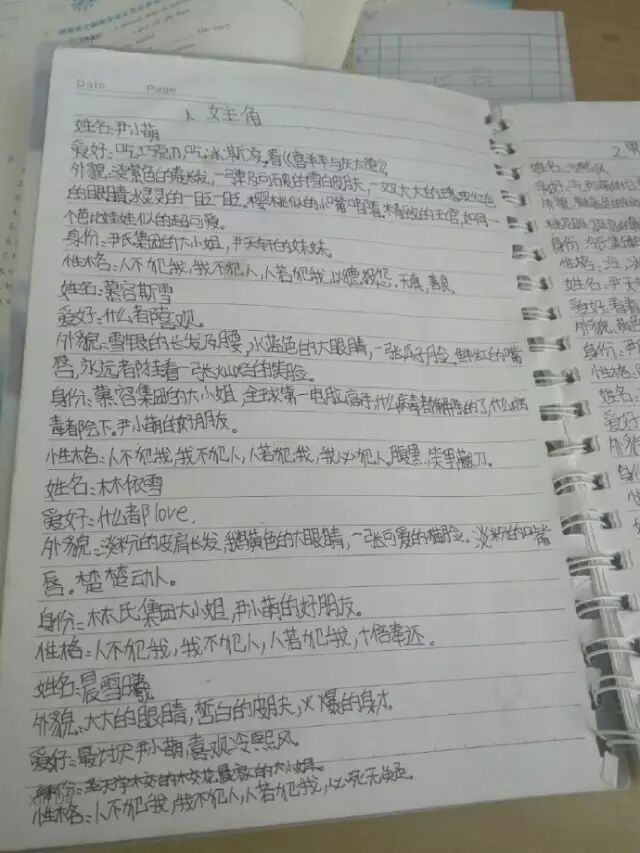 Date Page
1. 女主角
姓名:尹小萌
爱好:吃巧克力,吃冰淇凌,看《喜羊羊与灰太狼》。
外貌:淡紫色的卷长发,一弹即可破的雪白皮肤,一双大大的
的眼睛水灵灵的一眨一眨。樱桃似的小嘴,精致的王官,如同一
个芭比娃娃似的超可爱。
身份:尹氏集团的大小姐,尹天佑的妹妹。
性格:人不犯我,我不犯人,人若犯我,以德报怨。天真,善良
姓名:慕容斯雪
爱好:什么都喜欢。
外貌:雪银的长发及腰,水蓝色的大眼睛,一张瓜子脸。鲜红的嘴
唇,永远都挂着一张火火的笑脸。
身份:慕容集团的大小姐,全球第一电脑高手,什么病毒都解除的了,什么病
毒都会下。尹小萌的好朋友。
性格:人不犯我,我不犯人,人若犯我,我必犯人。腹黑,笑里藏刀。
姓名:林依雪
爱好:什么都love.
外貌:淡粉的披肩长发,鹅黄色的大眼睛,一张可爱的猫脸。淡粉的嘴
唇。楚楚动人。
身份:林氏集团大小姐,尹小萌的好朋友。
性格:人不犯我,我不犯人,人若犯我,十倍奉还。
姓名:晨雪曦
外貌:大大的眼睛,皙白的皮肤,火爆的身材。
爱好:最讨厌尹小萌,喜欢冷熙风。
身份:圣天学校的校花,晨家的大小姐。
性格:人不犯我,我不犯人,人若犯我,必死无疑。
2 男
姓名:
爱好:吃
外貌:
桃花眼
身份:
性格:冷,冰
姓名:尹天
爱好:看看
外貌:
身份:尹
性格:
姓名:
爱好:
外貌
身份:
性格: